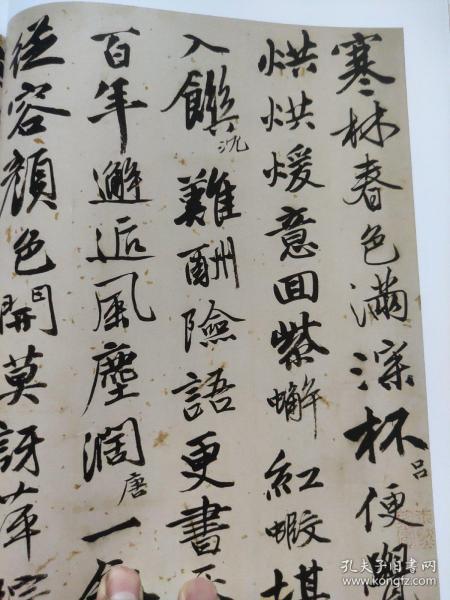 寒林春色滿深杯吕便
烘烘煖意回紫蠏紅蝦堪
入饌沈難酬險語更書
百年邂逅風塵濶唐一
從容顏色開莫訝萍
孔夫子旧书网